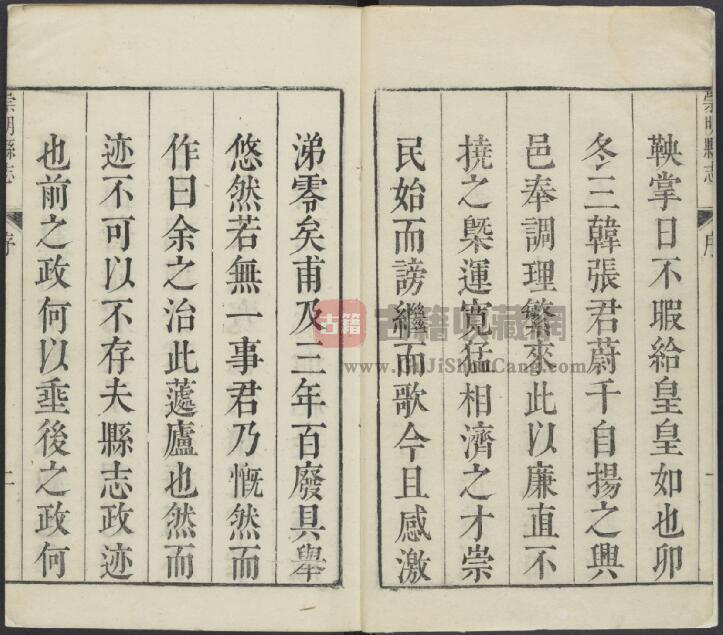 鞅掌日不暇給皇皇如也卯
冬三韓張君蔚千自揚之興
邑奉調理繁來此以廉直不
撓之槩運寬猛相濟之才崇
民始而謗繼而歌今且感激
涕零矣甫及三年百廢具舉
悠然若無一事君乃慨然而
作曰余之治此蘧廬也然而
迹不可以不存夫縣志政迹
也前之政何以垂後之政何
崇明縣志
序
一
崇明縣志
序
二
古籍
古籍收藏網